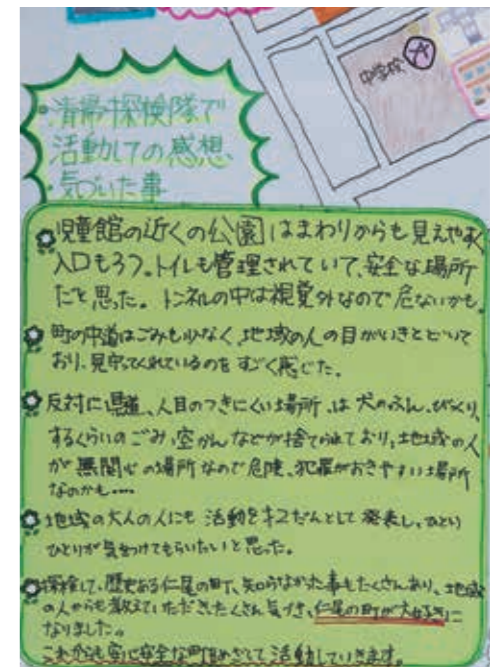 中学校
清掃探検隊で
活動しての感想
・気づいた事
児童館の近くの公園はまわりからも見えやすく
入口も3つ。トイレも管理されていて、安全な場所
だと思った。トンネルの中は視覚外なので危ないかも。
町の中道はごみも少なく、地域の人の目がいきとどいて
おり、見守ってくれているのをすごく感じた。
反対に県道、人目のつきにくい場所、は犬のふん、びっくり
するくらいのごみ、空かんなどが捨てられており、地域の人
が無関心の場所なので危険、犯罪がおきやすい場所
なのかも....
地域の大人の人にも活動を キスだんとして発表し、ひとり
ひとりが気をつけてもらいたいと思った。
探検して、歴史ある仁尾の町、知らなかった事もたくさんあり、地域
の人からも教えていただきたくさん気づき、仁尾の町が大好きに
なりました。
これからも更に安全な町をめざして活動していきます。